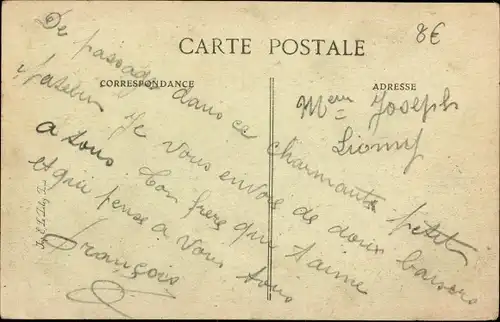 8€
CARTE POSTALE
CORRESPONDANCE
ADRESSE
De passage dans ce charmant petit
patelin Je vous envois de doux baisers
a tous ton frere qui t'aime
et qui pense a vous tous
François
Joseph